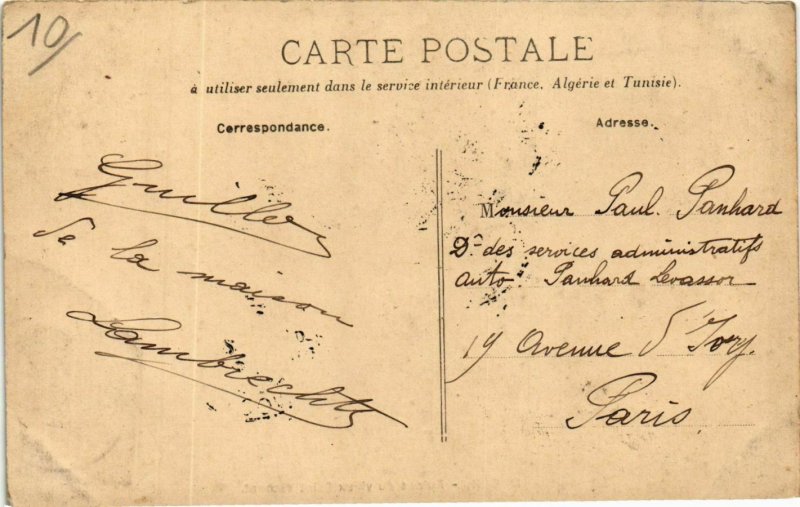 10/
CARTE POSTALE
à utiliser seulement dans le service intérieur (France, Algérie et Tunisie).
Correspondance.
Guillou
de la maison
Lambrechts
Adresse.
Monsieur Paul Panhard
Dr des services administratifs
auto Panhard Levassor
19 Avenue d'Ivry.
Paris